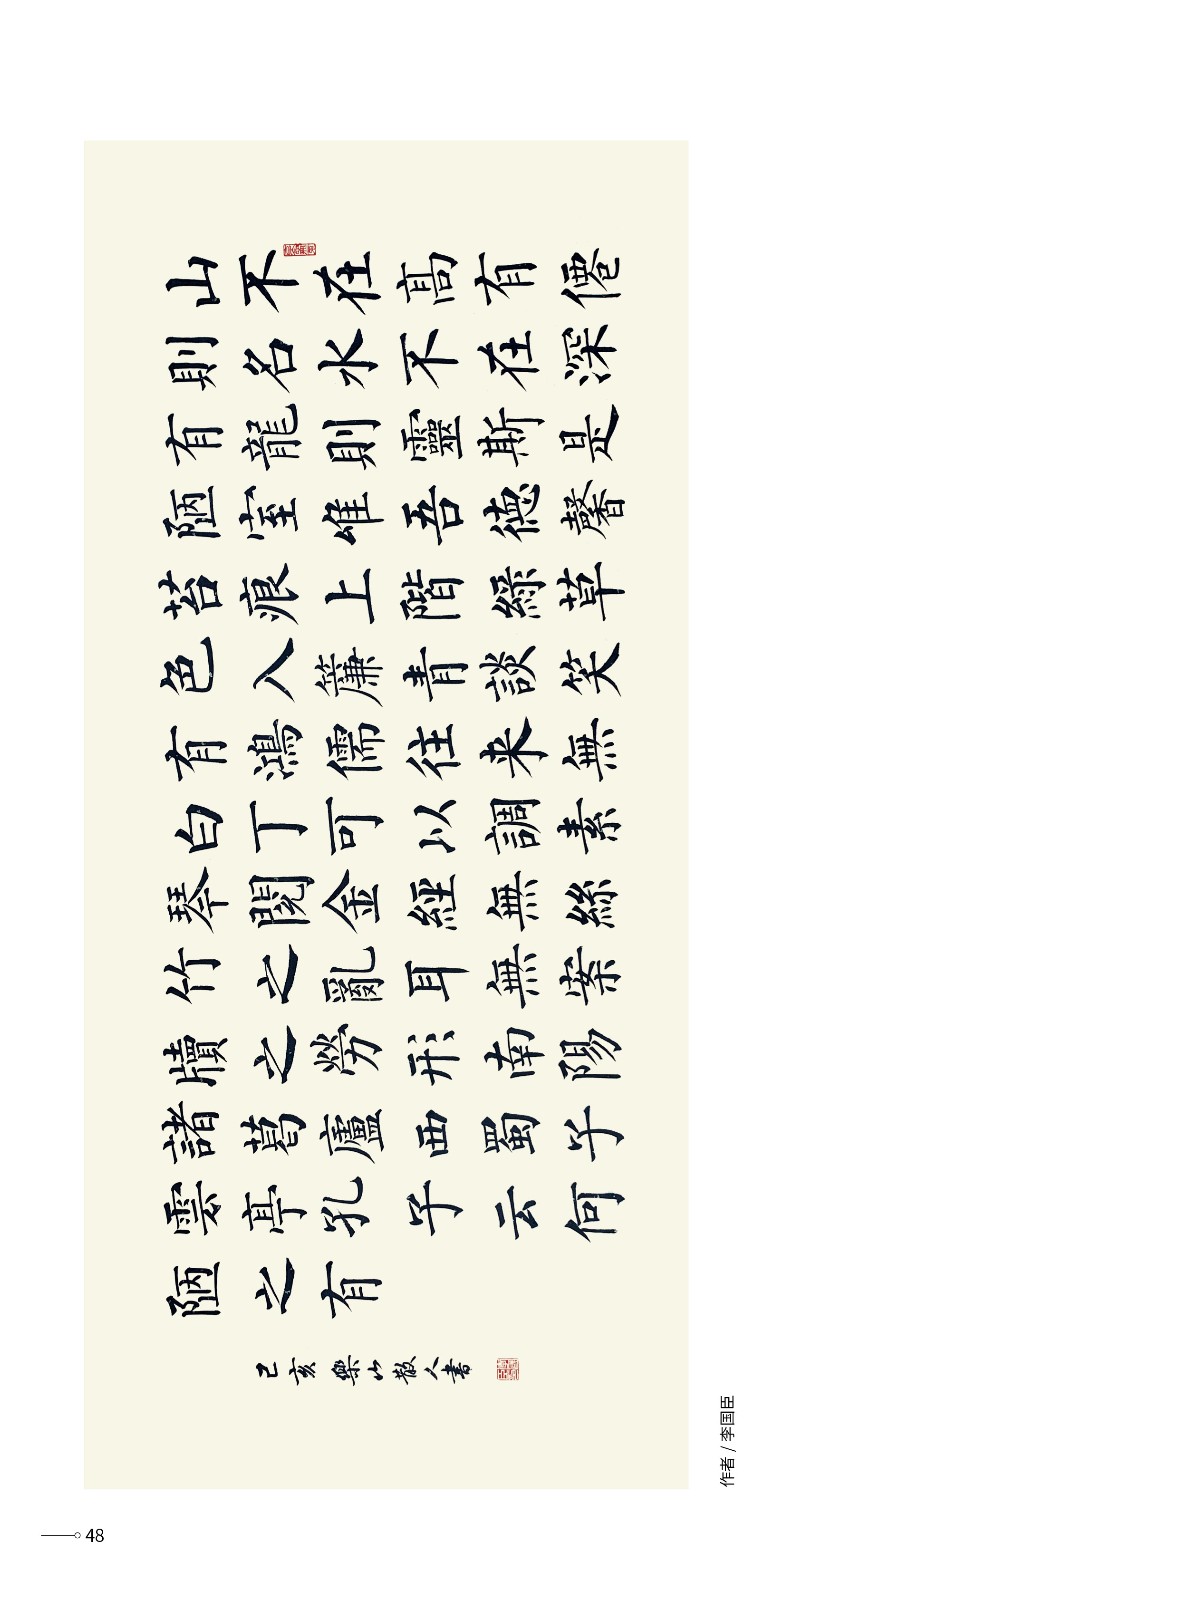 山不在高有僊
則名水不在深
有龍則靈斯是
陋室唯吾德馨
苔痕上階綠草
色入簾青談笑
有鴻儒往来無
白丁可以調素
琴閱金經無絲
竹之亂耳無案
牘之勞形南陽
諸葛廬西蜀子
雲亭孔子云何
陋之有
己亥樂山散人書
作者 / 李国臣
48